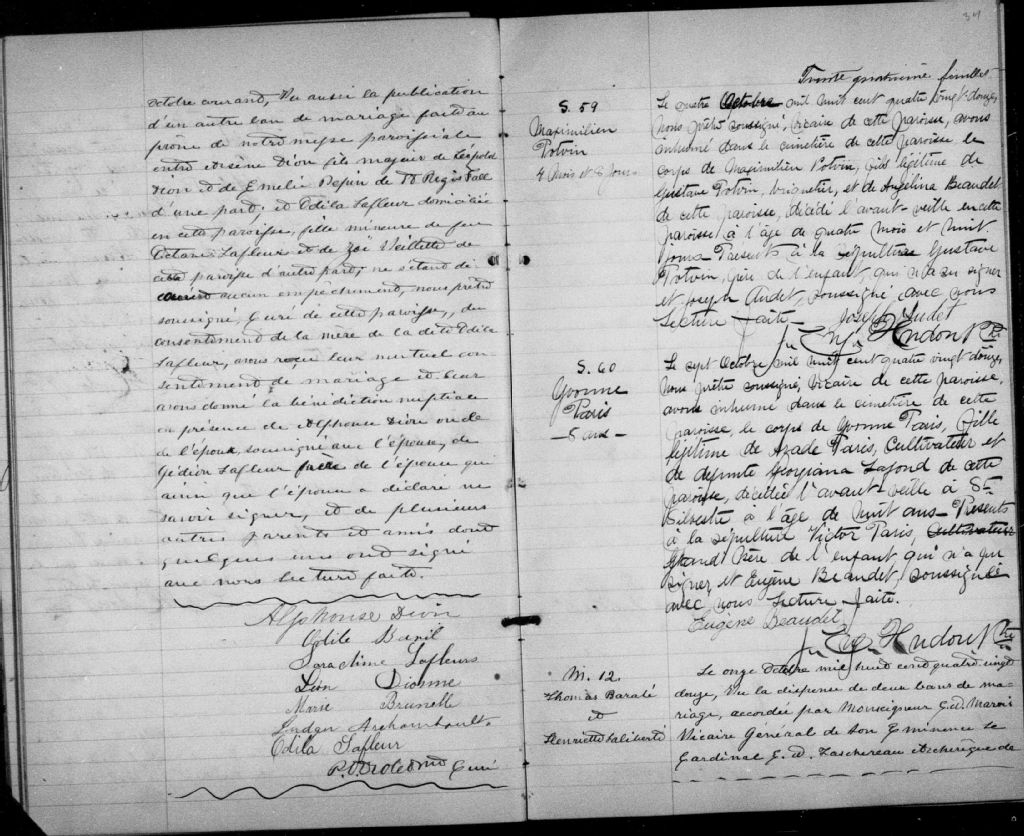 octobre courant, Vu aussi la publication
d'un autre ban de mariage faite au
prone de notre messe paroissiale
entre Arsène Dion fils majeur de Léopold
Dion et de Emelie Pepin de St Regis Fall
d'une part; et Odila Lafleur domiciliée
en cette paroisse, fille mineure de feu
Octave Lafleur et de Zoë Veillette de
cette paroisse d'autre part; ne s'étant dé
couvert aucun empêchement, nous prêtre
soussigné, Curé de cette paroisse, du
consentement de la mère de la dite Odila
Lafleur, avons reçu leur mutuel con-
sentement de mariage et leur
avons donné la bénédiction nuptiale
en présence de Alphonse Dion oncle
de l'époux soussigné avec l'épouse, de
Gédéon Lafleur frère de l'épouse qui
ainsi que l'époux a déclaré ne
savoir signer, et de plusieurs
autres parents et amis dont
quelques uns ont signé
avec nous lecture faite.
Alphonse Dion
Odile Baril
Lafleurs
Léon Dionne
Marie Brunelle
Archambault
Odila Lafleur
Curé
34
Trente quatrième feuillet
S. 59
Maximilien
Potvin
4 Mois et 8 Jours
Le quatre Octobre mil huit cent quatre vingt-douze,
nous prêtre soussigné, vicaire de cette paroisse, avons
inhumé dans le cimetière de cette paroisse, le
corps de Maximilien Potvin, fils légitime de
Gustave Potvin, briquetier, et de Angélina Beaudet
de cette paroisse, décédé l'avant-veille en cette
paroisse à l'âge de quatre mois et huit
jours Présents à la sépulture Gustave
Potvin, père de l'enfant qui n'a su signer
et Joseph Audet, soussigné avec nous
Lecture faite — Joseph Audet
Hudon Ptre
S. 60
Yvonne
Paris
— 8 ans —
Le sept Octobre mil huit cent quatre vingt douze,
nous prêtre soussigné, vicaire de cette paroisse,
avons inhumé dans le cimetière de cette
paroisse, le corps de Yvonne Paris, fille
légitime de Azade Paris, Cultivateur et
de défunte Georgiana Lafond de cette
paroisse, décédée l'avant-veille à St
Silvestre à l'âge de huit ans — Présents
à la sépulture Victor Paris, Cultivateur
Grand Père de l'enfant qui n'a su
signer et Eugène Beaudet, soussigné
avec nous Lecture faite.
Eugène Beaudet
Hudon Ptre
M. 12.
Thomas Barabé
et
Henriette Laliberté
Le onze Octobre mil huit cent quatre vingt
douze, Vu la dispense de deux bans de ma-
riage, accordée par Monseigneur C. A. Marois
Vicaire Général de Son Eminence le
Cardinal E. A. Taschereau Archevêque de